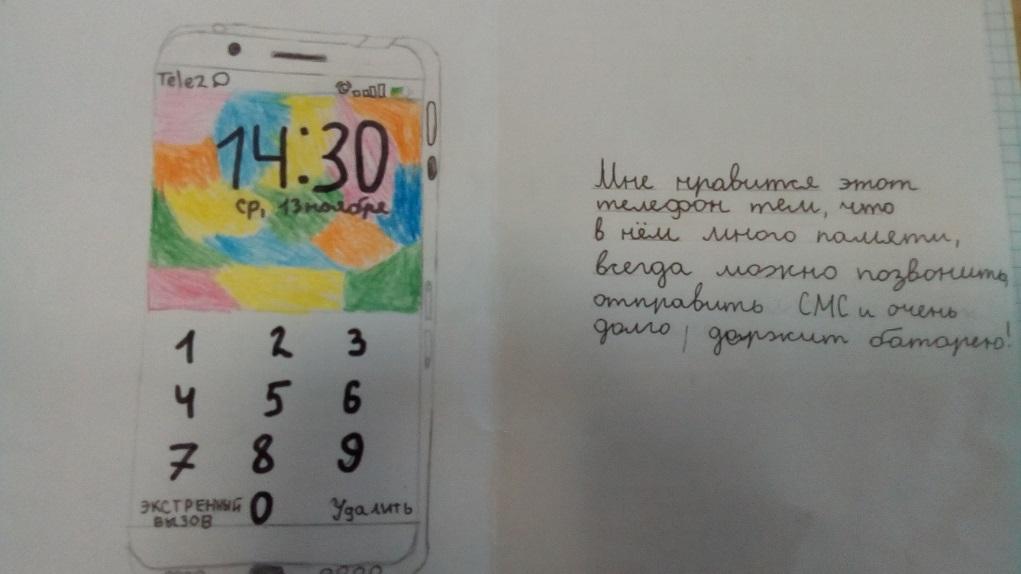 Tele2
14:30
ср, 13 ноября
1 2 3
4 5 6
7 8 9
ЭКСТРЕННЫЙ
ВЫЗОВ
0
Удалить
Мне нравится этот
телефон тем, что
в нём много памяти,
всегда можно позвонить,
отправить СМС и очень
долго держит батарею!